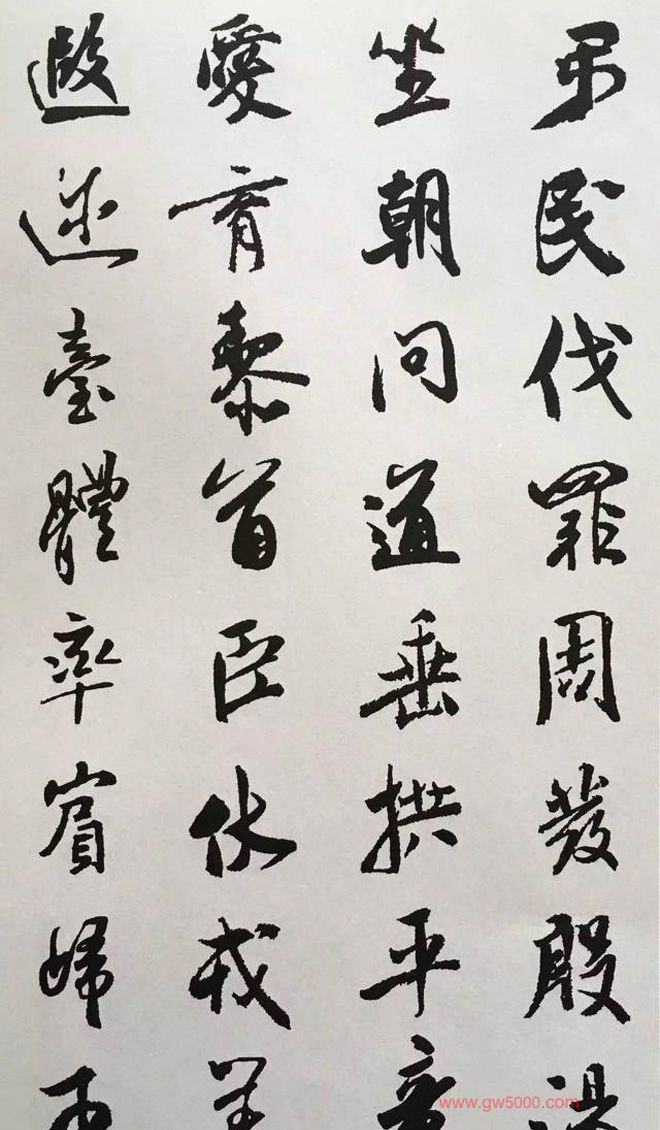 弔民伐罪周發殷湯
坐朝問道垂拱平章
愛育黎首臣伏戎羌
遐迩壹體率賓歸王
www.gw5000.com